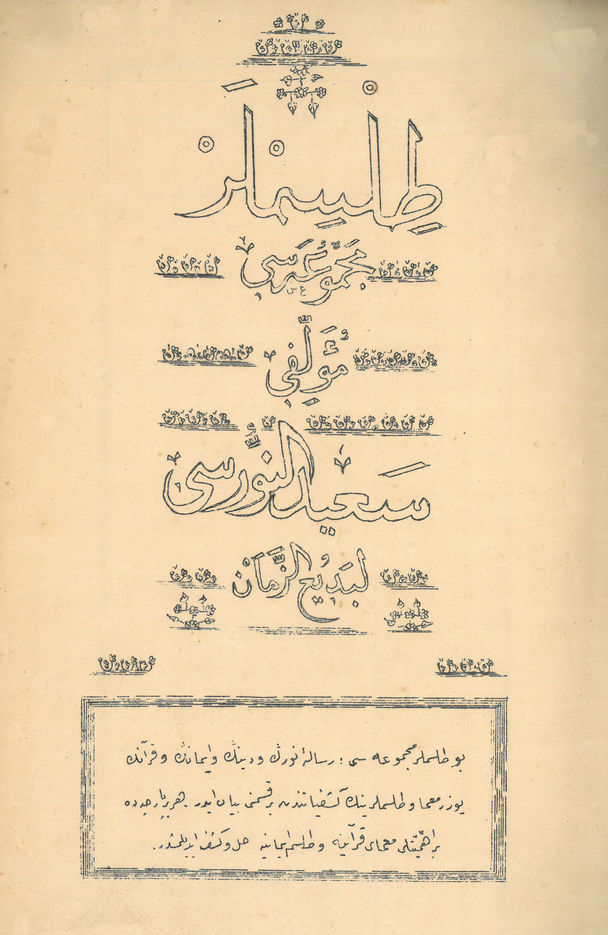 طِلْسِمْلَرْ
مَجْمُوعَه سِی
مُؤَلِّفِی
سَعِيدُ النُّورْسِی
بَدِيعُ الزَّمَانْ
بو طلسملر مجموعه سی ؛ رسالهٔ نورڭ و دينڭ و ايمانڭ و قرآنڭ
يوزر معما و طلسملرينڭ كشفياتندن بر قسمنی بيان ايدر. هر بر پارچه ده
بر اهمّيتلی معمای قرآنيه و طلسم ايمانيه حل و كشف ايديلمشدر.